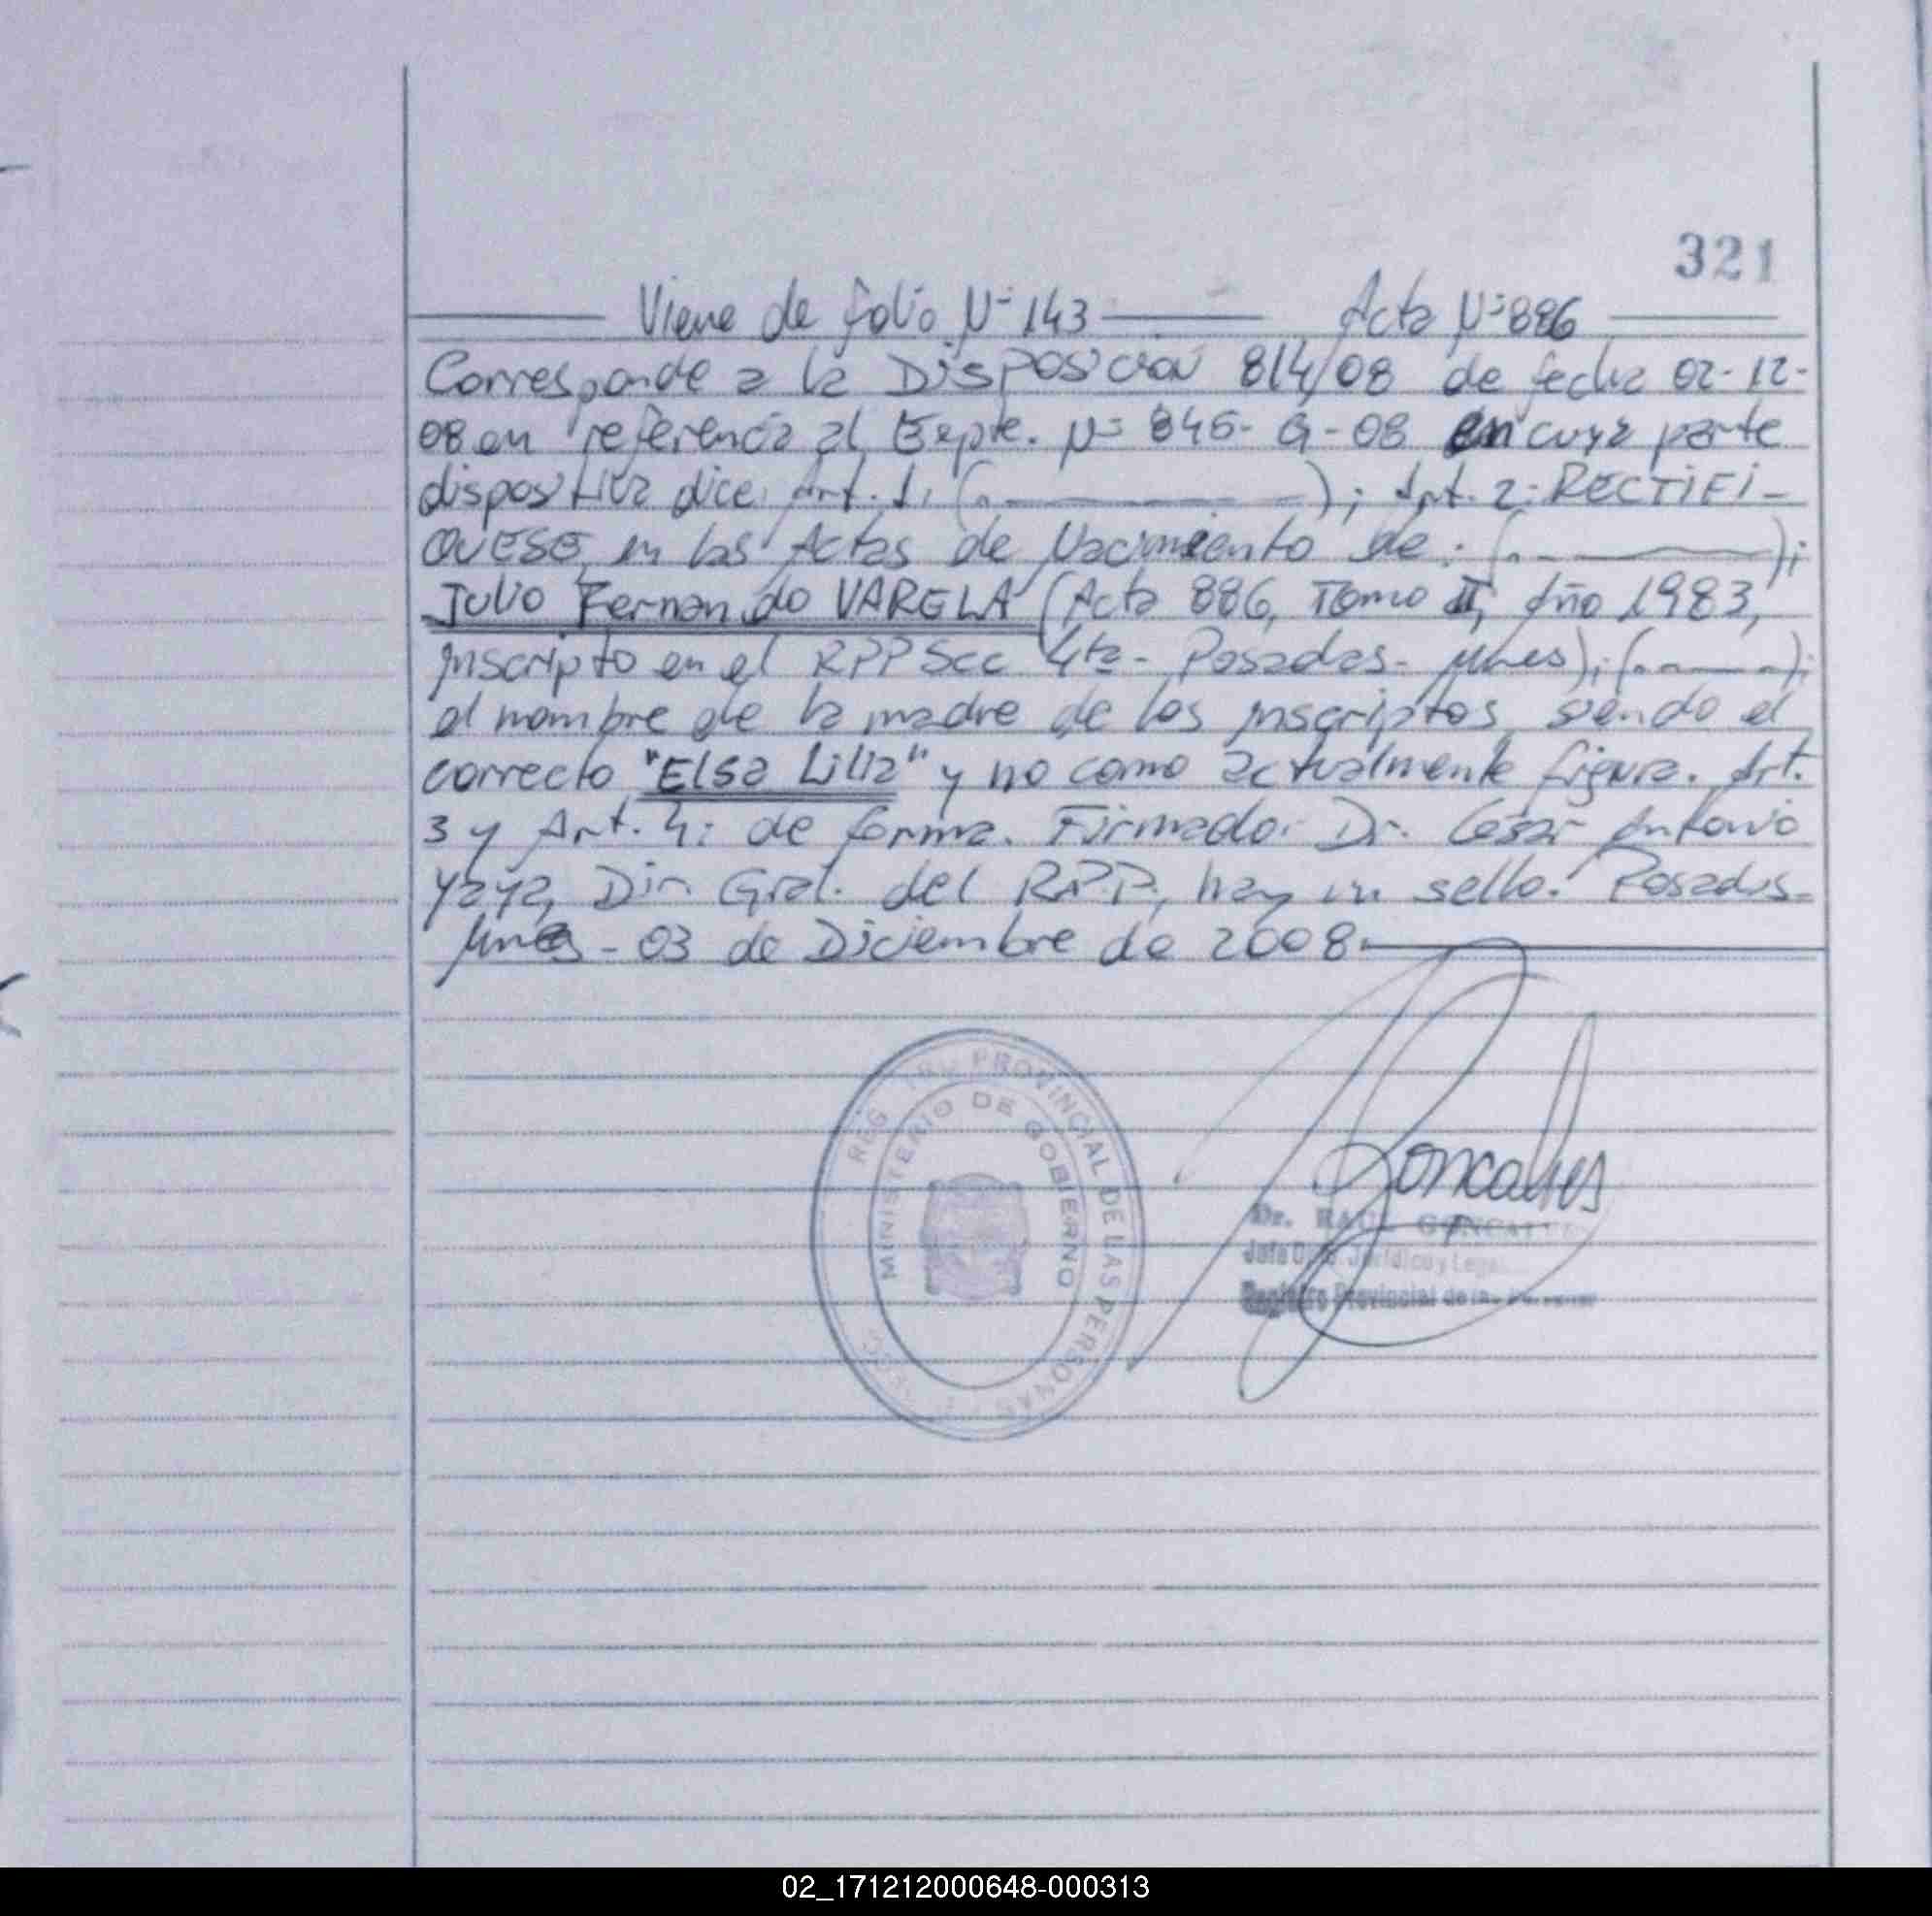 321
Viene de folio Nº 143 Acta Nº 886
Corresponde a la Disposición 814/08 de fecha 02-12-
08 en referencia al Expte. Nº 846-G-08 en cuya parte
dispositiva dice: Art. 1: (. ); Art. 2: RECTIFI-
QUESE, en las Actas de Nacimiento de: (. );
Julio Fernando VARELA (Acta 886, Tomo II, Año 1983,
inscripto en el RPP Secc 4ta - Posadas - Mnes); (. .);
el nombre de la madre de los inscriptos, siendo el
correcto "Elsa Lilia" y no como actualmente figura. Art.
3 y Art. 4: de forma. Firmado: Dr. César Antonio
Yaya, Dir. Gral. del R.P.P., hay un sello. Posadas-
Mnes - 03 de Diciembre de 2008.
REGISTRO PROVINCIAL DE LAS PERSONAS
MINISTERIO DE GOBIERNO
Goncalves
Dr. RAUL GONCALVES
Jefe Dpto. Jurídico y Legal
Registro Provincial de las Personas
02_171212000648-000313